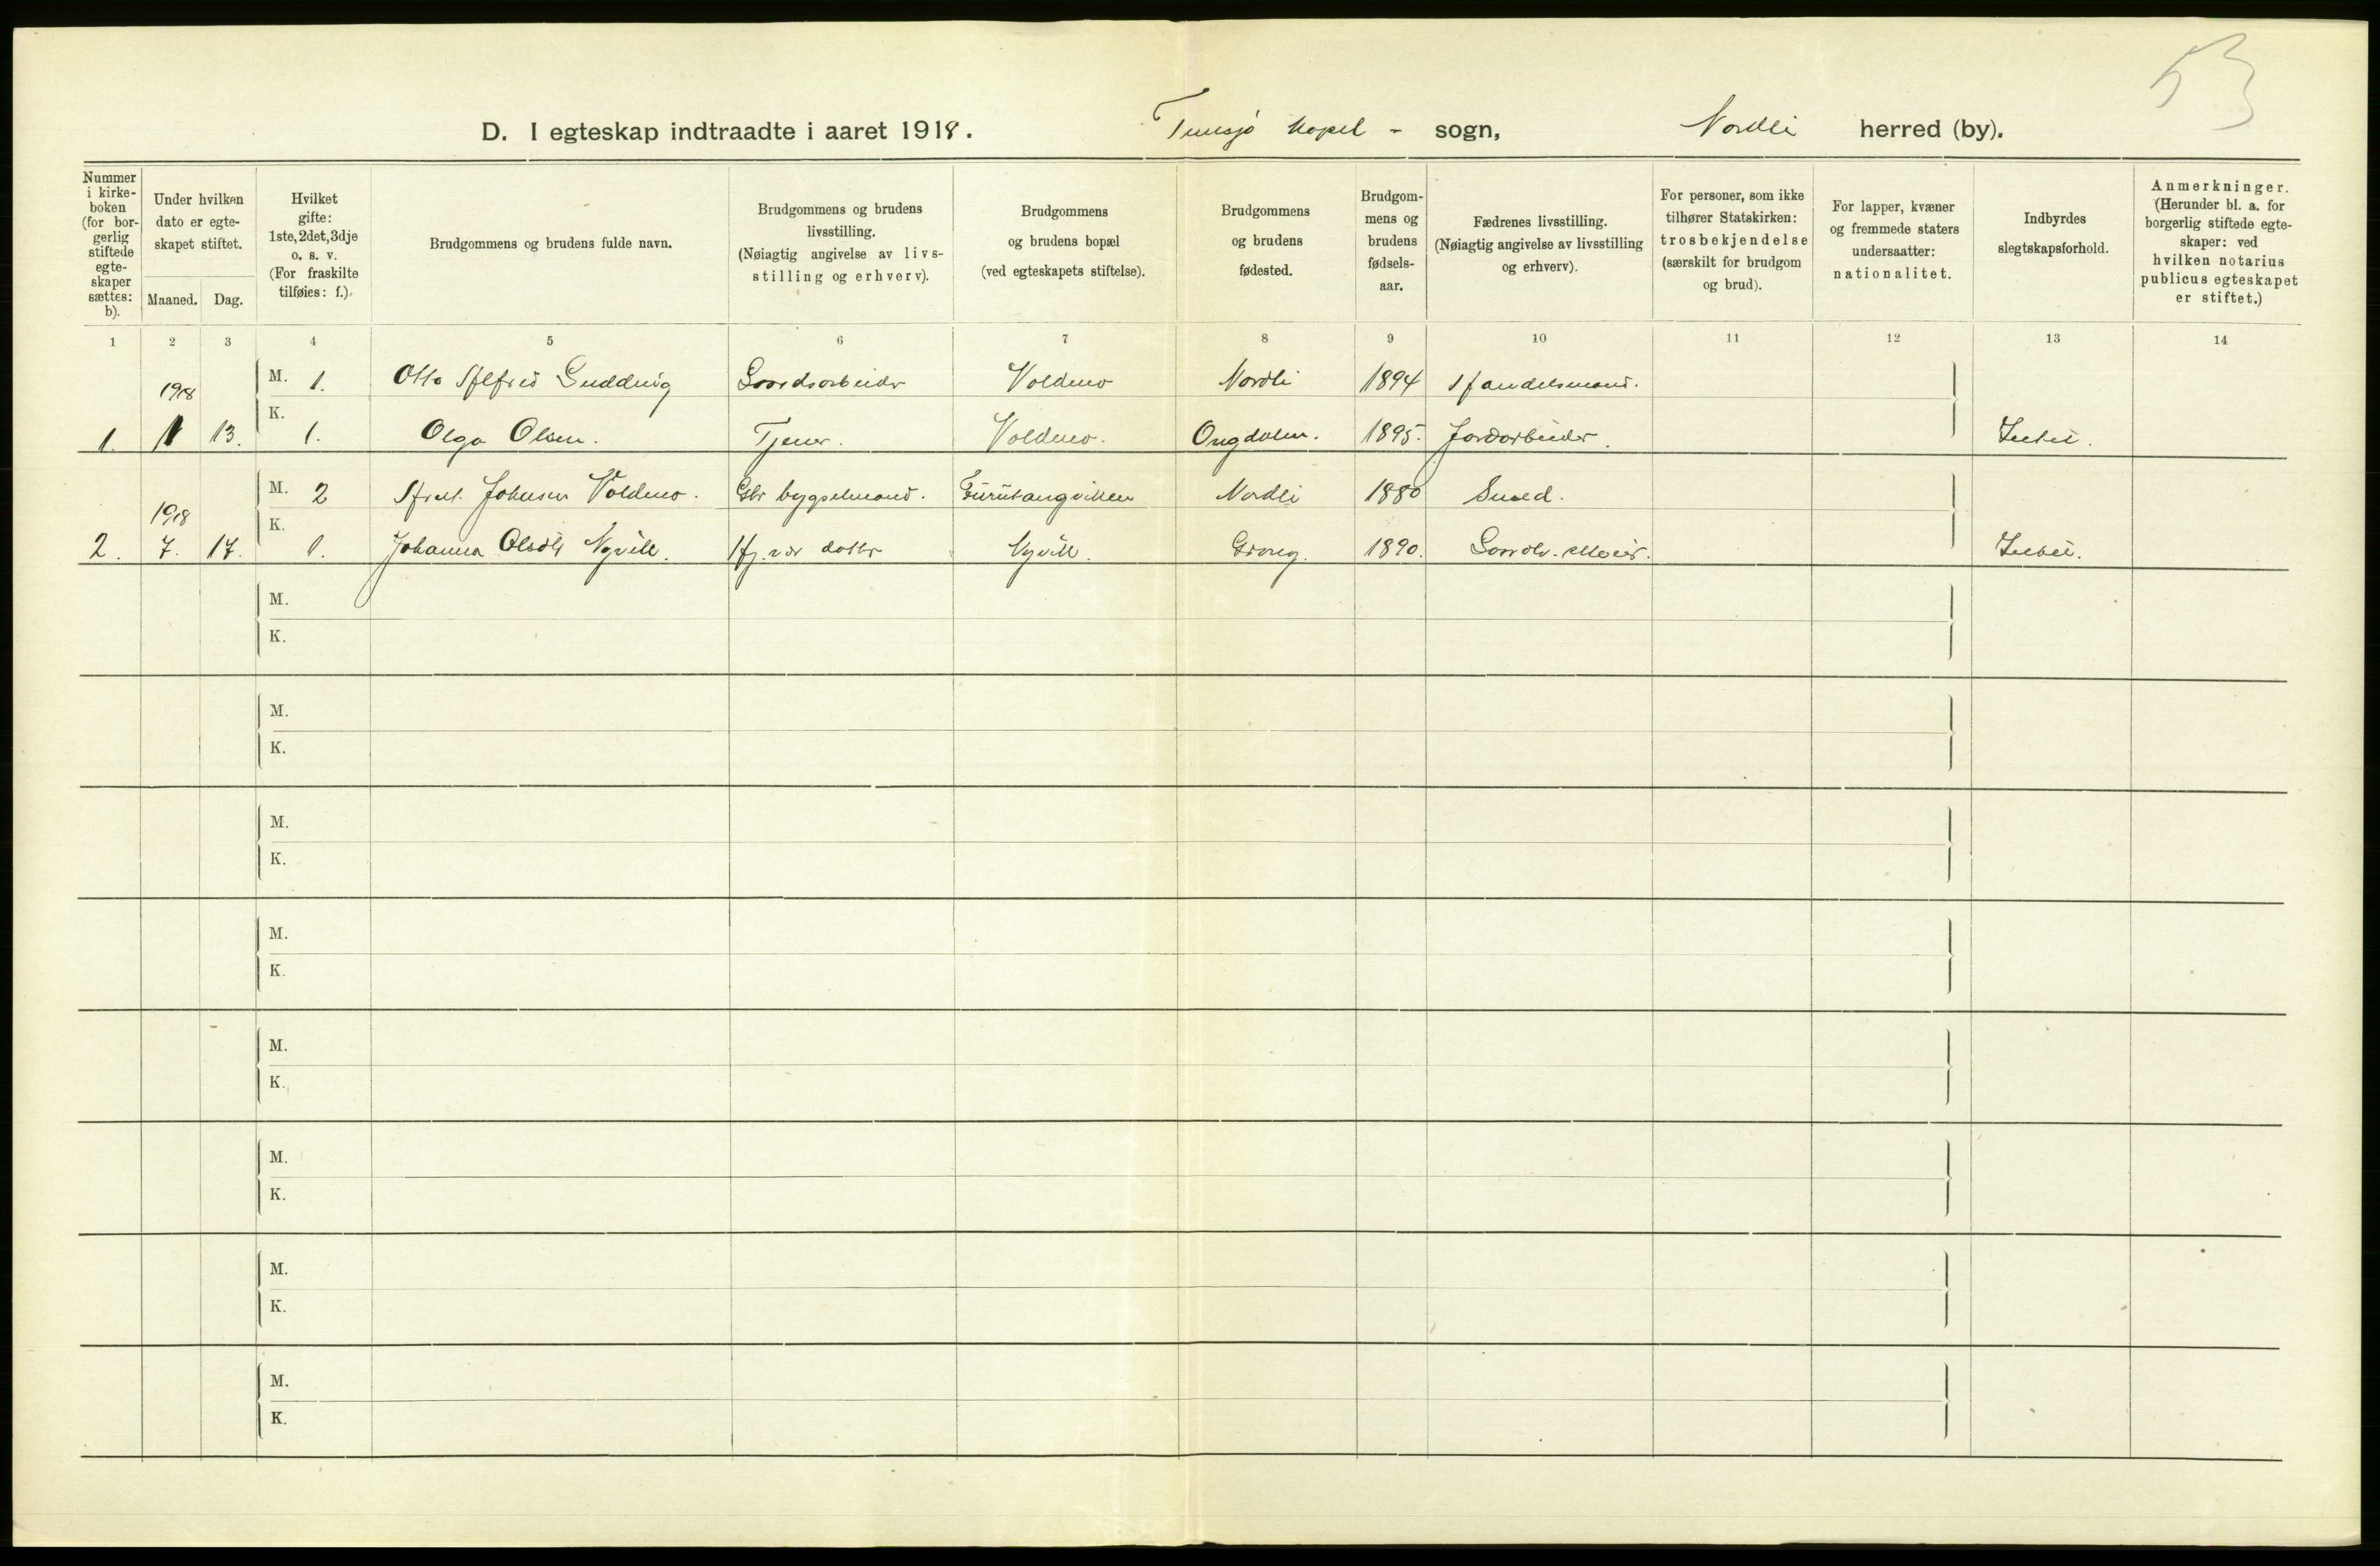 53
D. I egteskap indtraadte i aaret 1918. Tunsjø kapel - sogn, Nordli herred (by).
Nummer i kirke-boken (for bor-gerlig stiftede egte-skaper sættes: b).
Under hvilken dato er egte-skapet stiftet.
Maaned. Dag.
Hvilket gifte: 1ste, 2det, 3dje o. s. v. (For fraskilte tilføies: f.).
Brudgommens og brudens fulde navn.
Brudgommens og brudens livsstilling. (Nøiagtig angivelse av livs-stilling og erhverv).
Brudgommens og brudens bopæl (ved egteskapets stiftelse).
Brudgommens og brudens fødested.
Brudgom-mens og brudens fødsels-aar.
Fædrenes livsstilling. (Nøiagtig angivelse av livsstilling og erhverv).
For personer, som ikke tilhører Statskirken: trosbekjendelse (særskilt for brudgom og brud).
For lapper, kvæner og fremmede staters undersaatter: nationalitet.
Indbyrdes slegtskapsforhold.
Anmerkninger. (Herunder bl. a. for borgerlig stiftede egte-skaper: ved hvilken notarius publicus egteskapet er stiftet.)
1 2 3 4 5 6 7 8 9 10 11 12 13 14
1918 M. 1. Otto Alfred Gudding Voldmo Nordli 1894 Handelsmand.
1. 1 13. K. 1. Olga Olsen. Tjener. Voldmo. 1895. Jordarbeider.
1918 M. 2 Johnsen Voldmo. Gbr bygselmand. Nordli 1880 Smed.
2. 7. 17. K. 1. Johanna Nyvik. datter Nyvik. Grong. 1890.
M.
K.
M.
K.
M.
K.
M.
K.
M.
K.
M.
K.
M.
K.
M.
K.